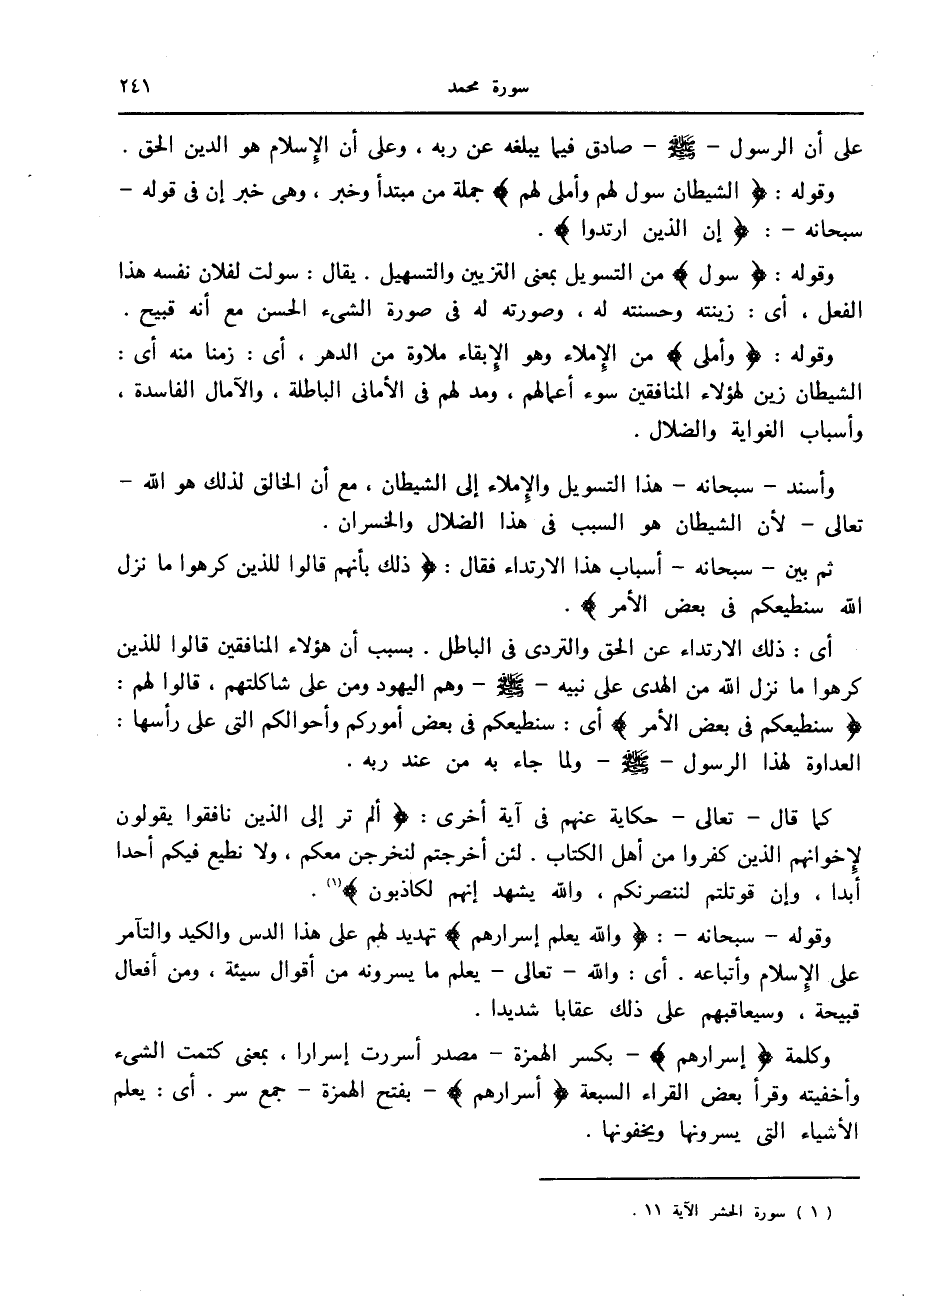 سورة محمد ٢٤١
على أن الرسول - ﷺ - صادق فيما يبلغه عن ربه ، وعلى أن الإسلام هو الدين الحق .
وقوله : ﴿ الشيطان سول لهم وأملى لهم ﴾ جملة من مبتدأ وخبر ، وهى خبر إن فى قوله -
سبحانه - : ﴿ إن الذين ارتدوا ﴾ .
وقوله : ﴿ سول ﴾ من التسويل بمعنى التزيين والتسهيل . يقال : سولت لفلان نفسه هذا
الفعل ، أى : زينته وحسنته له ، وصورته له فى صورة الشىء الحسن مع أنه قبيح .
وقوله : ﴿ وأملى ﴾ من الإملاء وهو الإبقاء ملاوة من الدهر ، أى : زمنا منه أى :
الشيطان زين لهؤلاء المنافقين سوء أعمالهم ، ومد لهم فى الأمانى الباطلة ، والآمال الفاسدة ،
وأسباب الغواية والضلال .
وأسند - سبحانه - هذا التسويل والإملاء إلى الشيطان ، مع أن الخالق لذلك هو الله -
تعالى - لأن الشيطان هو السبب فى هذا الضلال والخسران .
ثم بين - سبحانه - أسباب هذا الارتداء فقال : ﴿ ذلك بأنهم قالوا للذين كرهوا ما نزل
الله سنطيعكم فى بعض الأمر ﴾ .
أى : ذلك الارتداء عن الحق والتردى فى الباطل . بسبب أن هؤلاء المنافقين قالوا للذين
كرهوا ما نزل الله من الهدى على نبيه - ﷺ - وهم اليهود ومن على شاكلتهم ، قالوا لهم :
﴿ سنطيعكم فى بعض الأمر ﴾ أى : سنطيعكم فى بعض أموركم وأحوالكم التى على رأسها :
العداوة لهذا الرسول - ﷺ - ولما جاء به من عند ربه .
كما قال - تعالى - حكاية عنهم فى آية أخرى : ﴿ ألم تر إلى الذين نافقوا يقولون
لإخوانهم الذين كفروا من أهل الكتاب . لئن أخرجتم لنخرجن معكم ، ولا نطيع فيكم أحدا
أبدا ، وإن قوتلتم لننصرنكم ، والله يشهد إنهم لكاذبون ﴾(١) .
وقوله - سبحانه - : ﴿ والله يعلم إسرارهم ﴾ تهديد لهم على هذا الدس والكيد والتآمر
على الإسلام وأتباعه . أى : والله - تعالى - يعلم ما يسرونه من أقوال سيئة ، ومن أفعال
قبيحة ، وسيعاقبهم على ذلك عقابا شديدا .
وكلمة ﴿ إسرارهم ﴾ - بكسر الهمزة - مصدر أسررت إسرارا ، بمعنى كتمت الشىء
وأخفيته وقرأ بعض القراء السبعة ﴿ أسرارهم ﴾ - بفتح الهمزة - جمع سر . أى : يعلم
الأشياء التى يسرونها ويخفونها .
( ١ ) سورة الحشر الآية ١١ .